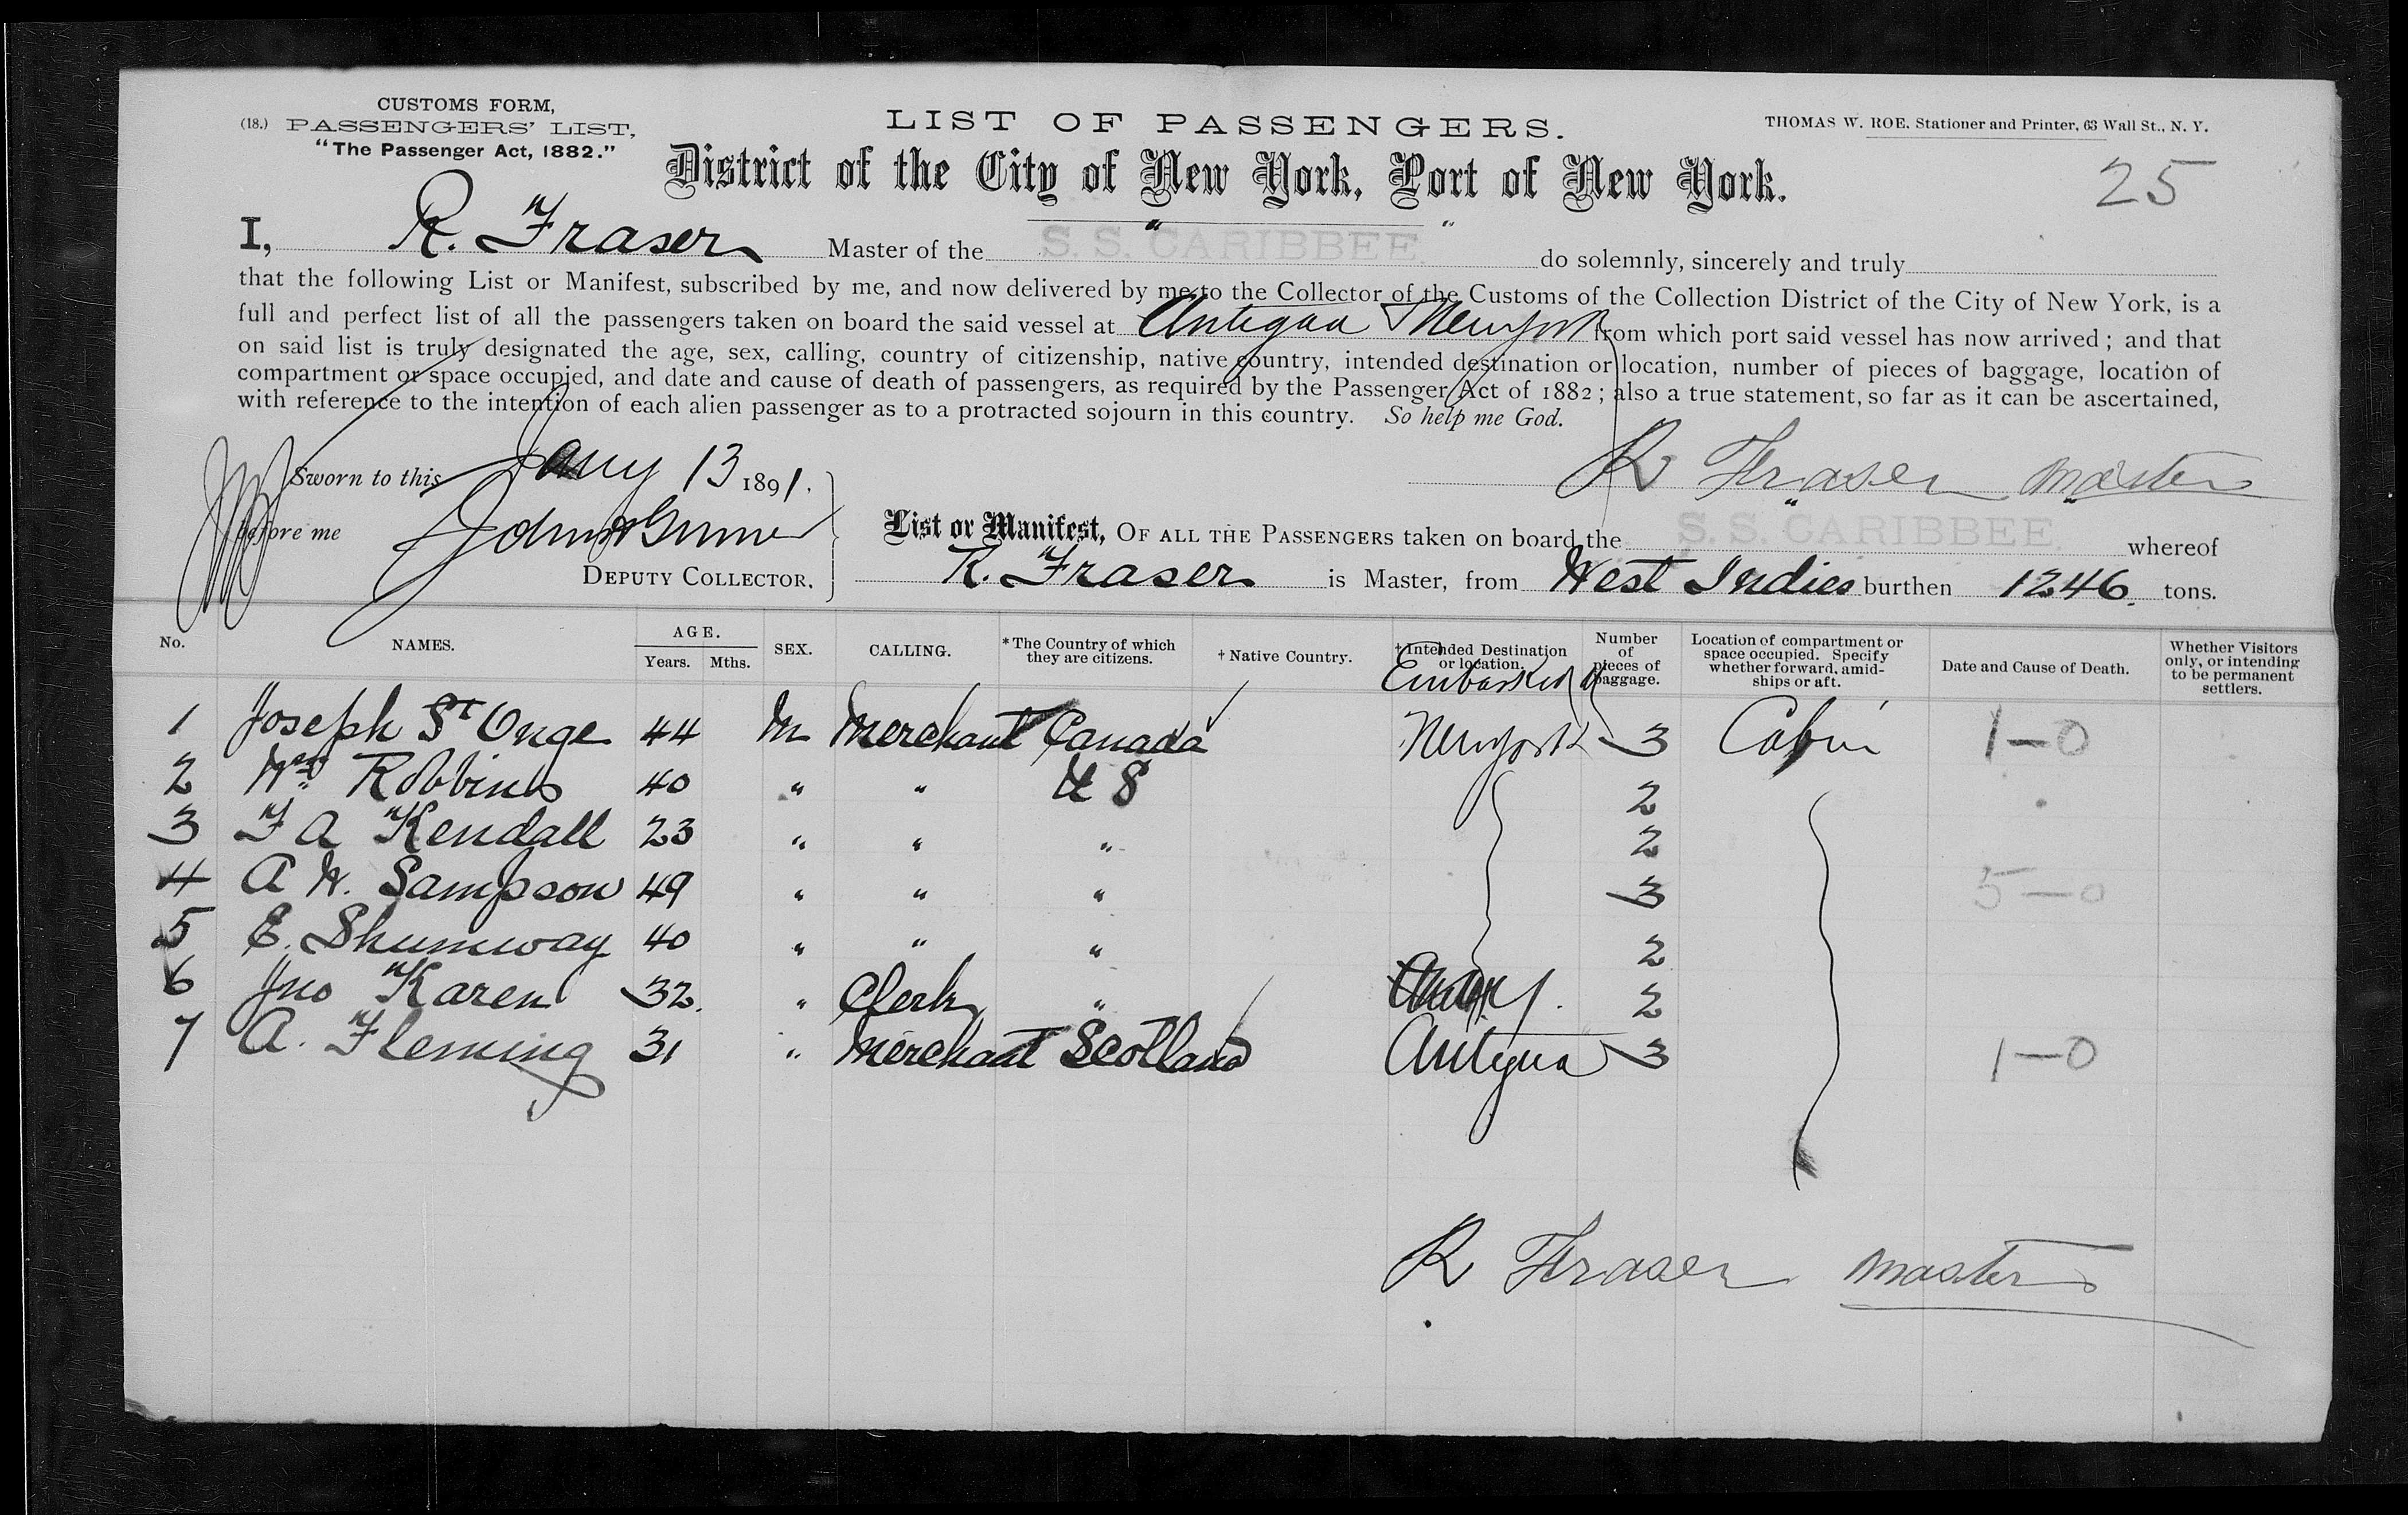 CUSTOMS FORM,
(18.) PASSENGERS' LIST,
"The Passenger Act, 1882."
LIST OF PASSENGERS.
THOMAS W. ROE, Stationer and Printer, 63 Wall St., N. Y.
District of the City of New York, Port of New York.
25
I, R. Fraser Master of the S. S. CARIBBEE. do solemnly, sincerely and truly
that the following List or Manifest, subscribed by me, and now delivered by me to the Collector of the Customs of the Collection District of the City of New York, is a
full and perfect list of all the passengers taken on board the said vessel at Antigua & New York from which port said vessel has now arrived; and that
on said list is truly designated the age, sex, calling, country of citizenship, native country, intended destination or location, number of pieces of baggage, location of
compartment or space occupied, and date and cause of death of passengers, as required by the Passenger Act of 1882; also a true statement, so far as it can be ascertained,
with reference to the intention of each alien passenger as to a protracted sojourn in this country. So help me God.
Sworn to this Jany 13 1891.
R Fraser master
before me
DEPUTY COLLECTOR.
List or Manifest, OF ALL THE PASSENGERS taken on board the S. S. CARIBBEE. whereof
R. Fraser is Master, from West Indies burthen 1246. tons.
No. NAMES. AGE. Years. Mths. SEX. CALLING. *The Country of which they are citizens. †Native Country. †Intended Destination or location. Number of pieces of baggage. Location of compartment or space occupied. Specify whether forward, amidships or aft. Date and Cause of Death. Whether Visitors only, or intending to be permanent settlers.
Embarked at
1 Joseph St Onge 44 M Merchant Canada New York 3 Cabin 1-0
2 Wm Robbins 40 " " U S 2
3 F A Kendall 23 " " " 2
4 A W. Sampson 49 " " " 3 5-0
5 E. Shumway 40 " " " 2
6 Jno Karen 32. " Clerk " 2
7 A. Fleming 31 " Merchant Scotland Antigua 3 1-0
R Fraser master